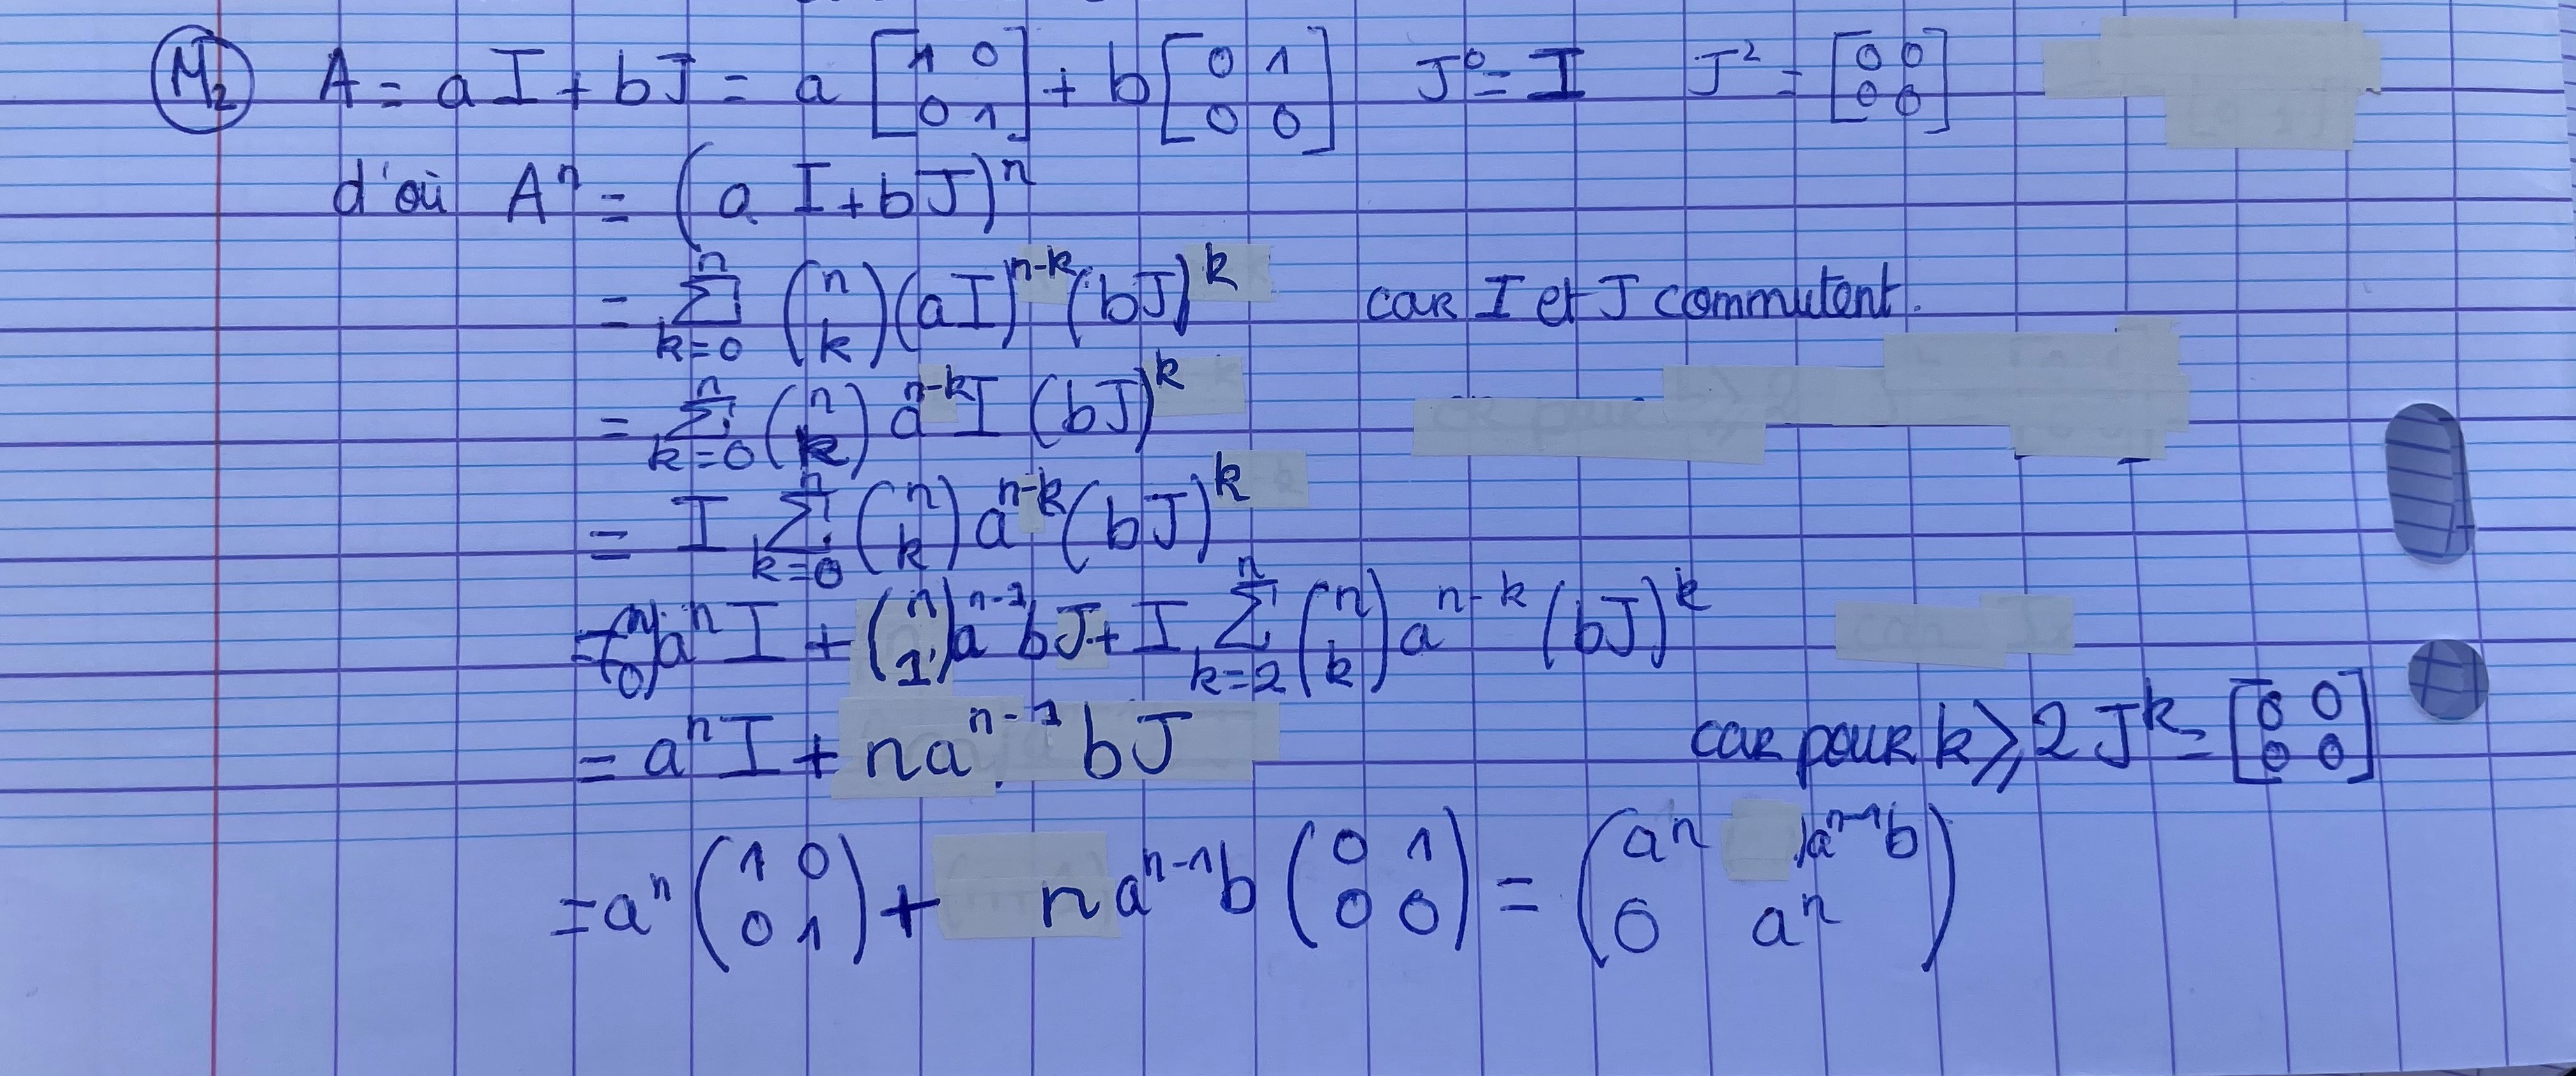 M₂ A = a I + bJ = a [1 0; 0 1] + b [0 1; 0 0] J⁰ = I J² = [0 0; 0 0]
d'où Aⁿ = (a I + bJ)ⁿ
= Σ_{k=0}^{n} (n k) (aI)^{n-k} (bJ)^k car I et J commutent.
= Σ_{k=0}^{n} (n k) a^{n-k} I (bJ)^k
= I Σ_{k=0}^{n} (n k) a^{n-k} (bJ)^k
= (n 0) aⁿ I + (n 1) a^{n-1} bJ + I Σ_{k=2}^{n} (n k) a^{n-k} (bJ)^k
= aⁿ I + na^{n-1} bJ car pour k ⩾ 2 J^k = [0 0; 0 0]
= aⁿ (1 0; 0 1) + n a^{n-1} b (0 1; 0 0) = (aⁿ )a^{n-1} b; 0 aⁿ)